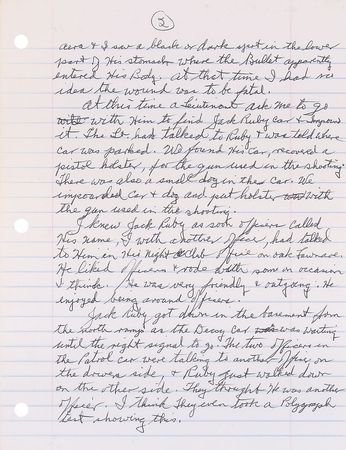 2
area & I saw a black or dark spot in the lower
part of His stomach where the Bullet apparently
entered His Body. at that time I had no
idea the wound was to be fatal.
At this time a Lieutenant ask me to go
with Him to find Jack Ruby car & Impow
it. The Lt. had talked to Ruby & was told where
car was parked. We found His car, recovered a
pistol holster, for the gun used in the shooting.
There was also a small dog in the car. We
impounded car & dog and put holster with
the gun used in the shooting.
I knew Jack Ruby as soon officers called
His name, I with another officer, had talked
to Him in His night Club office on oak lawn ave.
He liked officers & rode with som on occasion
I think. He was very friendly & outgoing. He
enjoyed being around officers.
Jack Ruby got down in the basement from
the north ramp as the Decoy car was waiting
until the right signal to go. The two officers in
the Patrol car were talking to another Officer on
the drivers side, & Ruby just walked down
on the other side. They thought He was another
officer. I think They even took a Polygraph
test showing this.